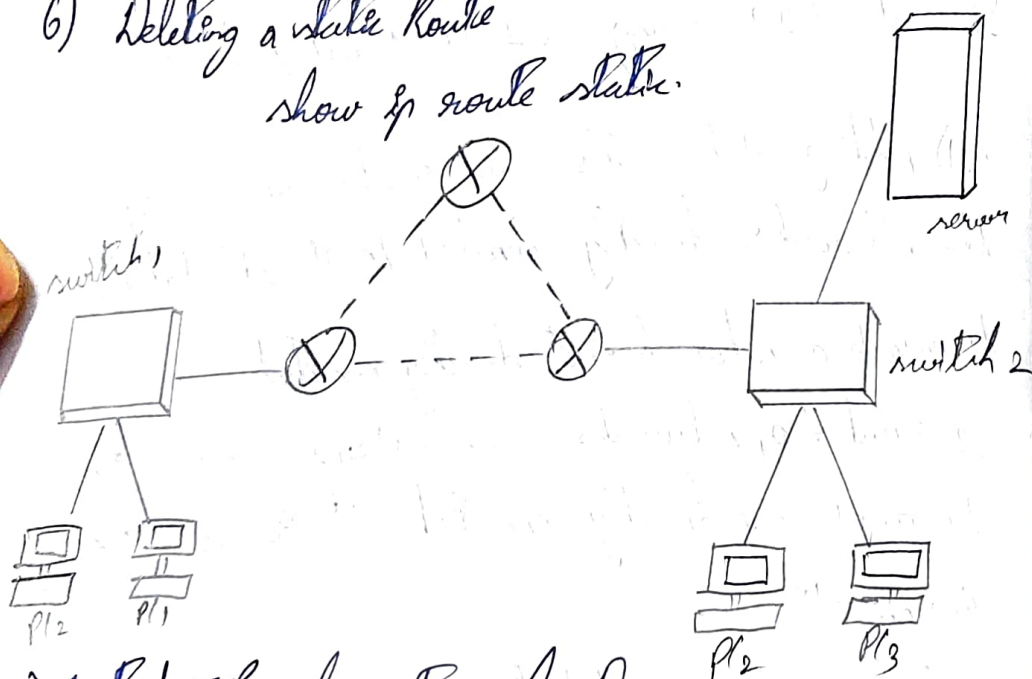 6) Deleting a static Route
show ip route static.
server
switch 1
switch 2
PC2
PC1
PC2
PC3